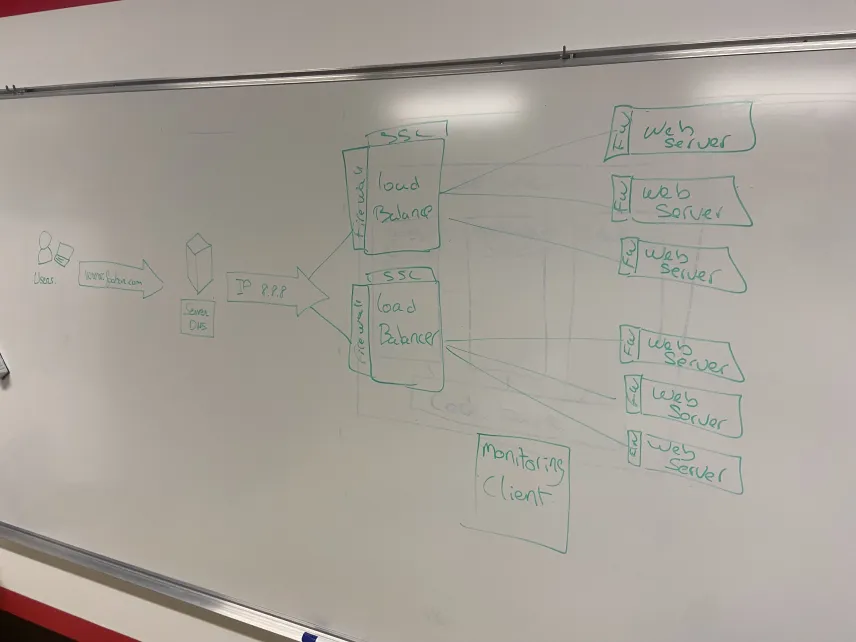 Users
Server
DNS
IP 8.8.8
SSL
Firewall
load
Balancer
SSL
Firewall
load
Balancer
FW
Web
Server
FW
Web
Server
FW
Web
Server
FW
Web
Server
FW
Web
Server
FW
Web
Server
Monitoring
Client